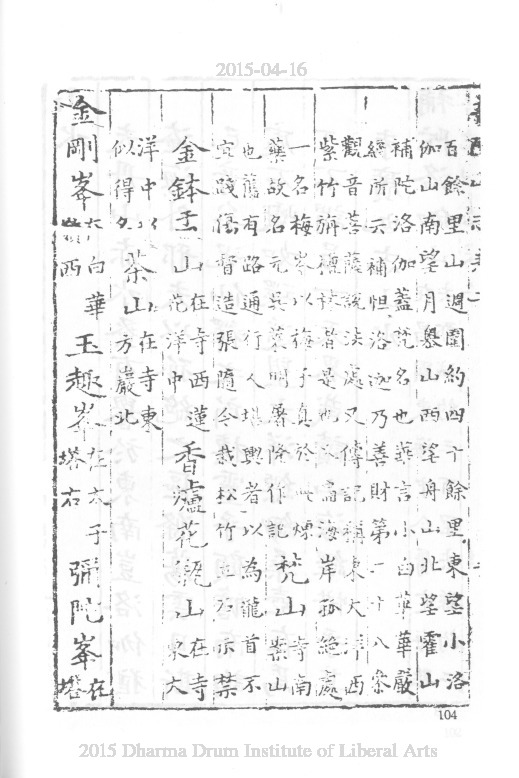 2015-04-16
百餘里山週圍約四十餘里東望小洛
伽山南望月嶴山西望舟山北望霍山
補陀洛伽蓋梵名也華言小白華華嚴
經所云補怛洛迦乃善財第二十八參
觀音菩薩說法處又傳記稱東大洋西
紫竹旃檀林者是也扁海岸孤絕處
一名梅岑以梅子真於此煉
藥故名元吳萊明屠隆作記
梵山寺南
案山
也舊有路通行人堪輿者以為龍首不
宜踐傷督造張隨令栽松竹立石示禁
金鉢盂山在寺西蓮
花洋中
香爐花瓶山在寺
東大
洋中以
似得名
茶山在寺東
北方巖
金剛峯在白華
西
玉趣峯在太子
塔右
彌陀峯在
塔
104
2015 Dharma Drum Institute of Liberal Arts